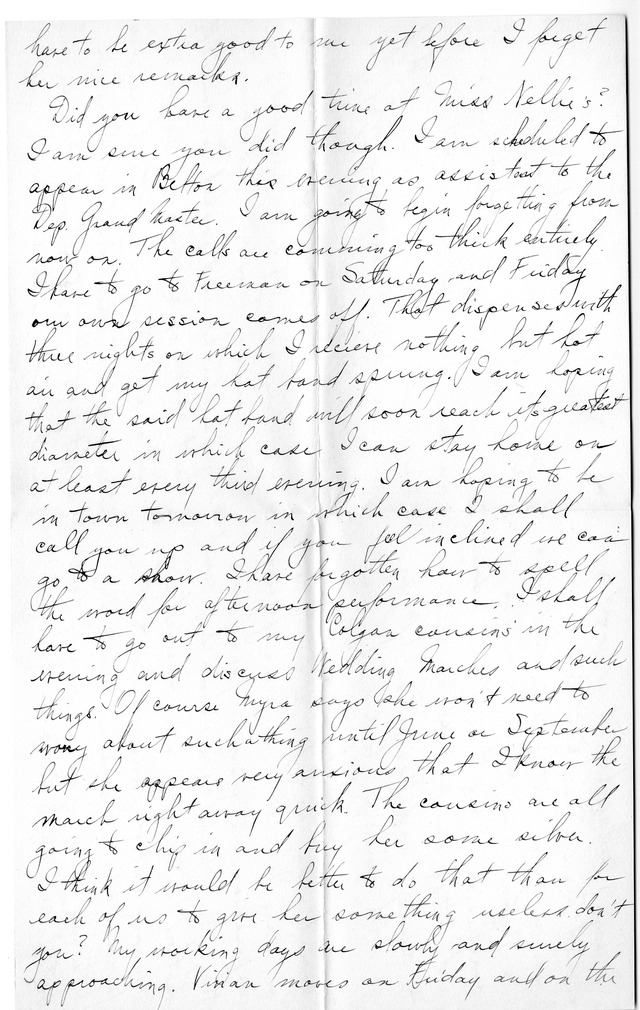 have to be extra good to me yet before I forget
her nice remarks.
Did you have a good time at Miss Nellie's?
I am sure you did though. I am scheduled to
appear in Belton this evening as assistant to the
Dep. Grand Master. I am going to begin forgetting from
now on. The calls are comming too thick entirely.
I have to go to Freeman on Saturday and Friday
our own session comes off. That dispenses with
three nights on which I recieve nothing but hot
air and get my hat band sprung. I am hoping
that the said hat band will soon reach its greatest
diameter in which case I can stay home on
at least every third evening. I am hoping to be
in town tomorrow in which case I shall
call you up and if you feel inclined we can
go to a show. I have forgotten how to spell
the word for afternoon performance. I shall
have to go out to my Colgan cousins in the
evening and discuss Wedding Marches and such
things. Of course Myra says she won't need to
worry about such a thing until June or September
but she appears very anxious that I know the
march right away quick. The cousins are all
going to chip in and buy her some silver.
I think it would be better to do that than for
each of us to give her something useless don't
you? My working days are slowly and surely
approaching. Vivian moves on Friday and on the